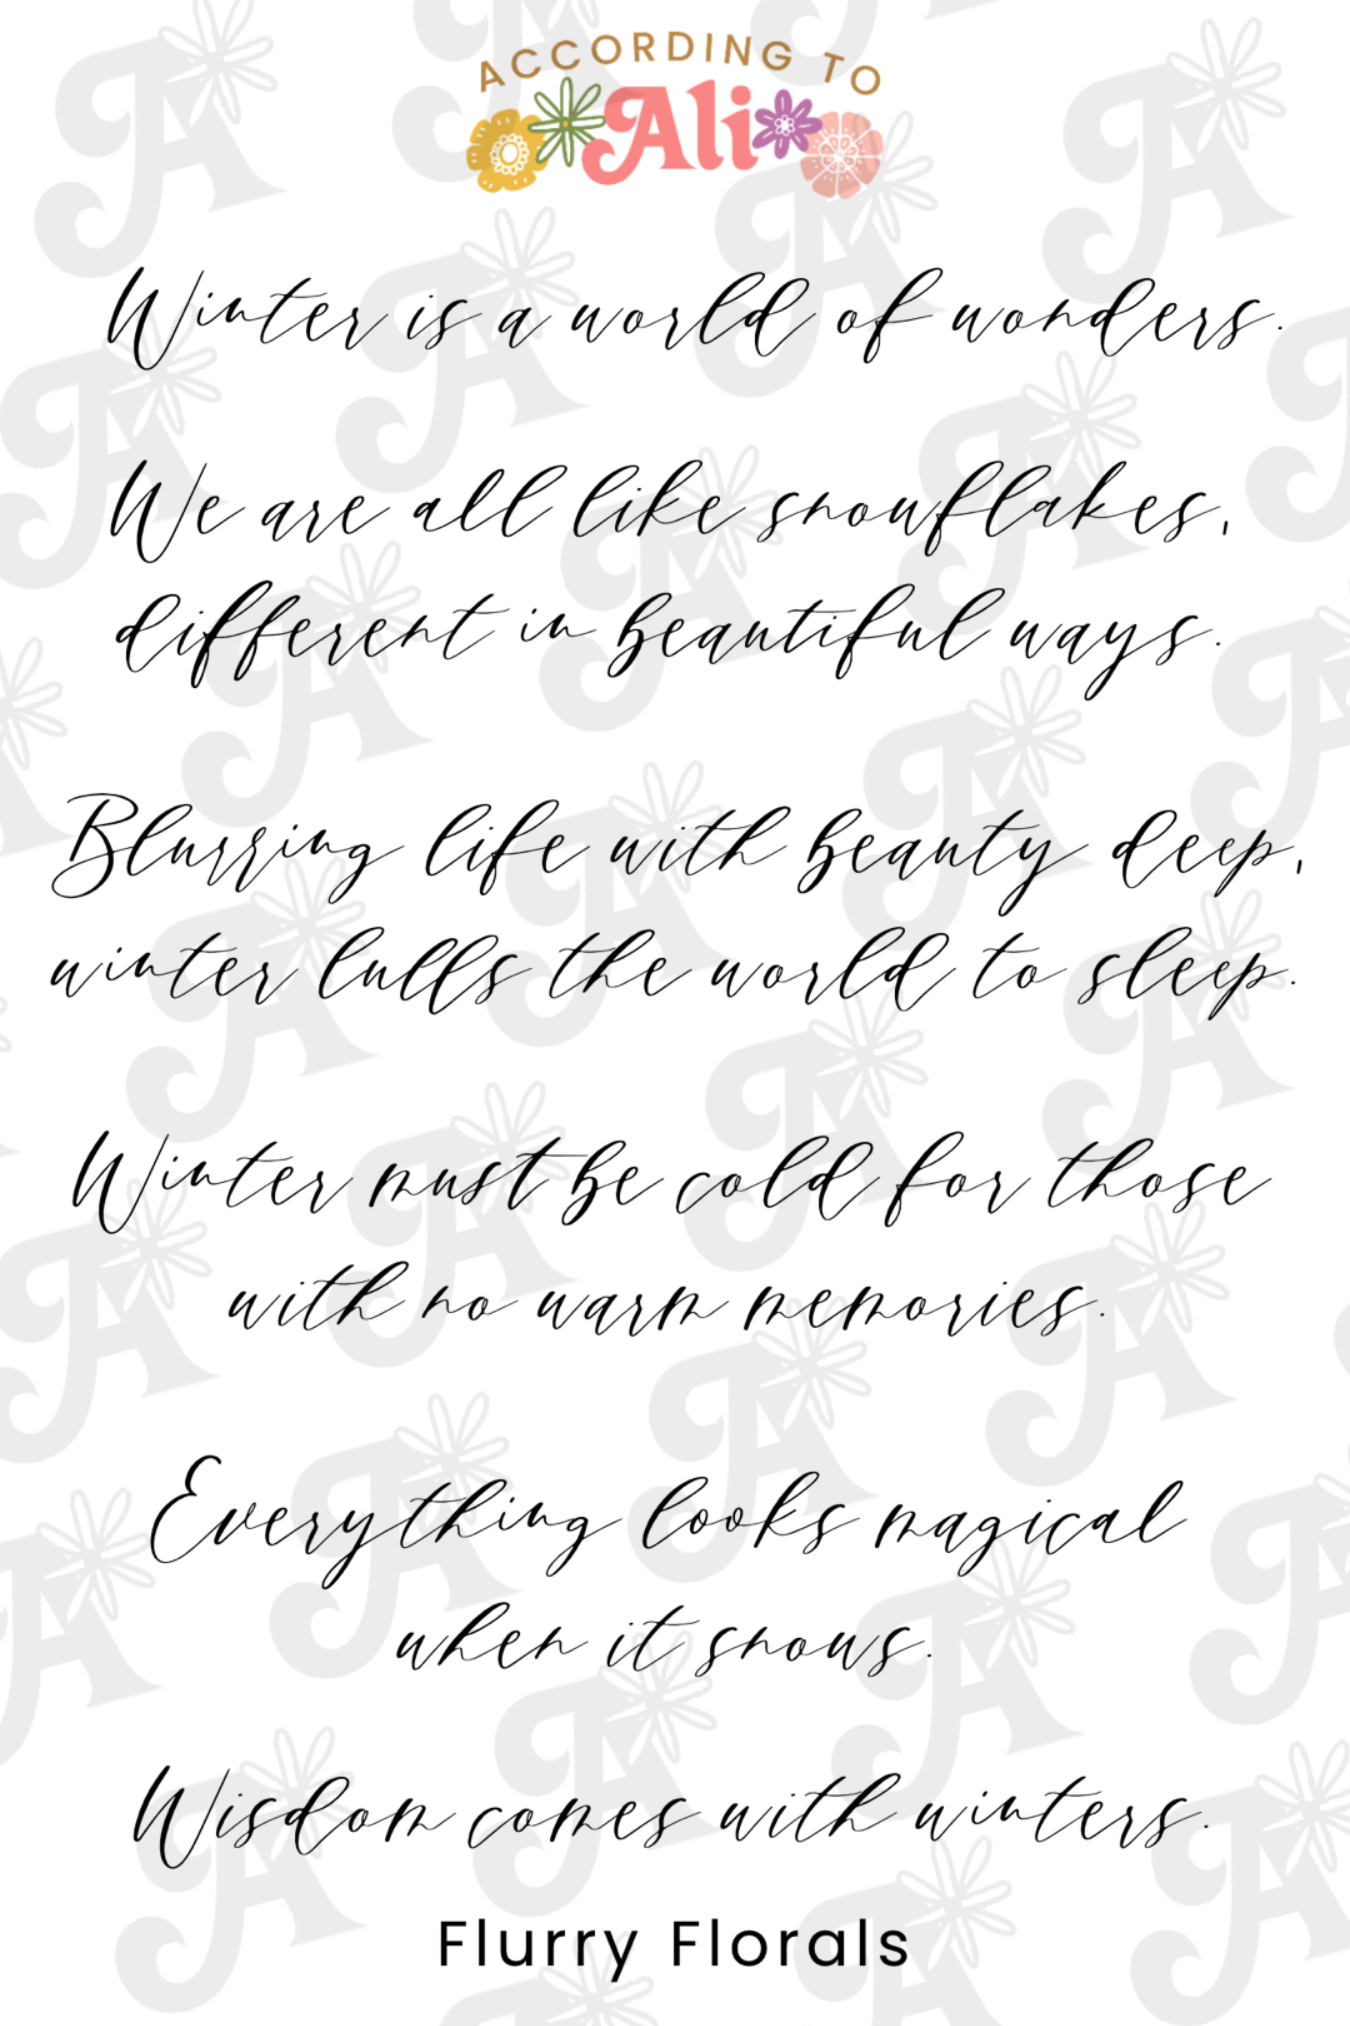 ACCORDING TO
Ali
Winter is a world of wonders.
We are all like snowflakes,
different in beautiful ways.
Blurring life with beauty deep,
winter lulls the world to sleep.
Winter must be cold for those
with no warm memories.
Everything looks magical
when it snows.
Wisdom comes with winters.
Flurry Florals